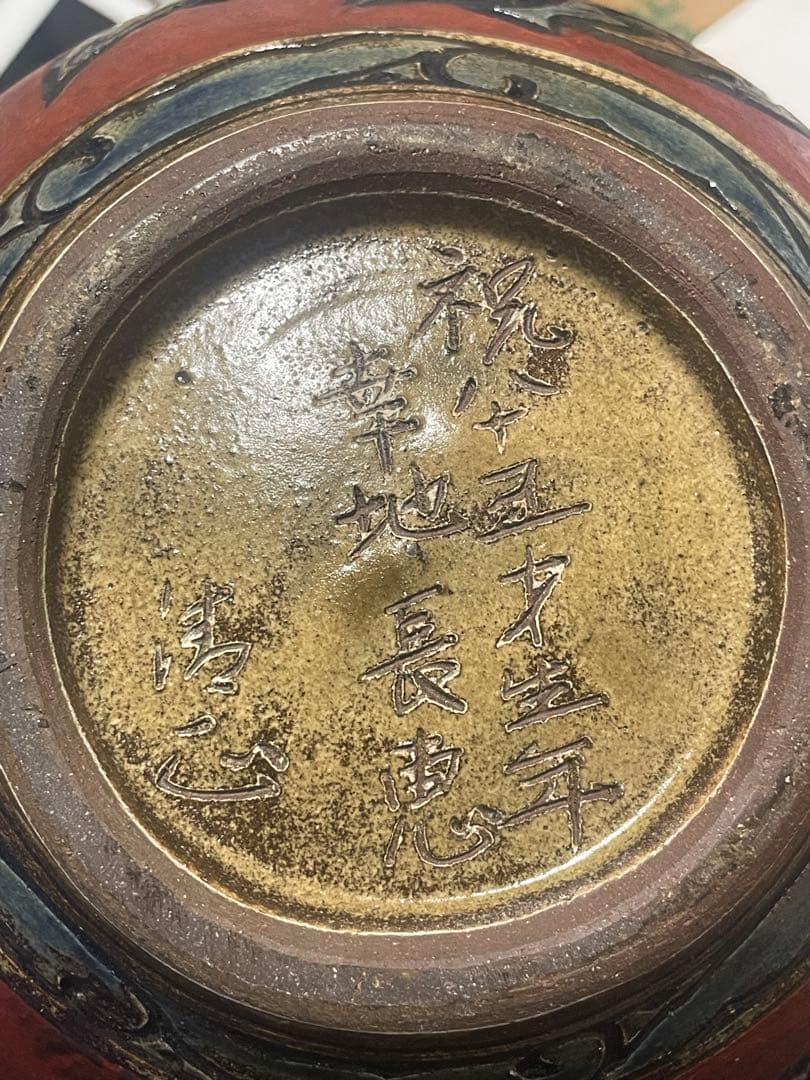 祝八十五才生年
幸地長恵
清正